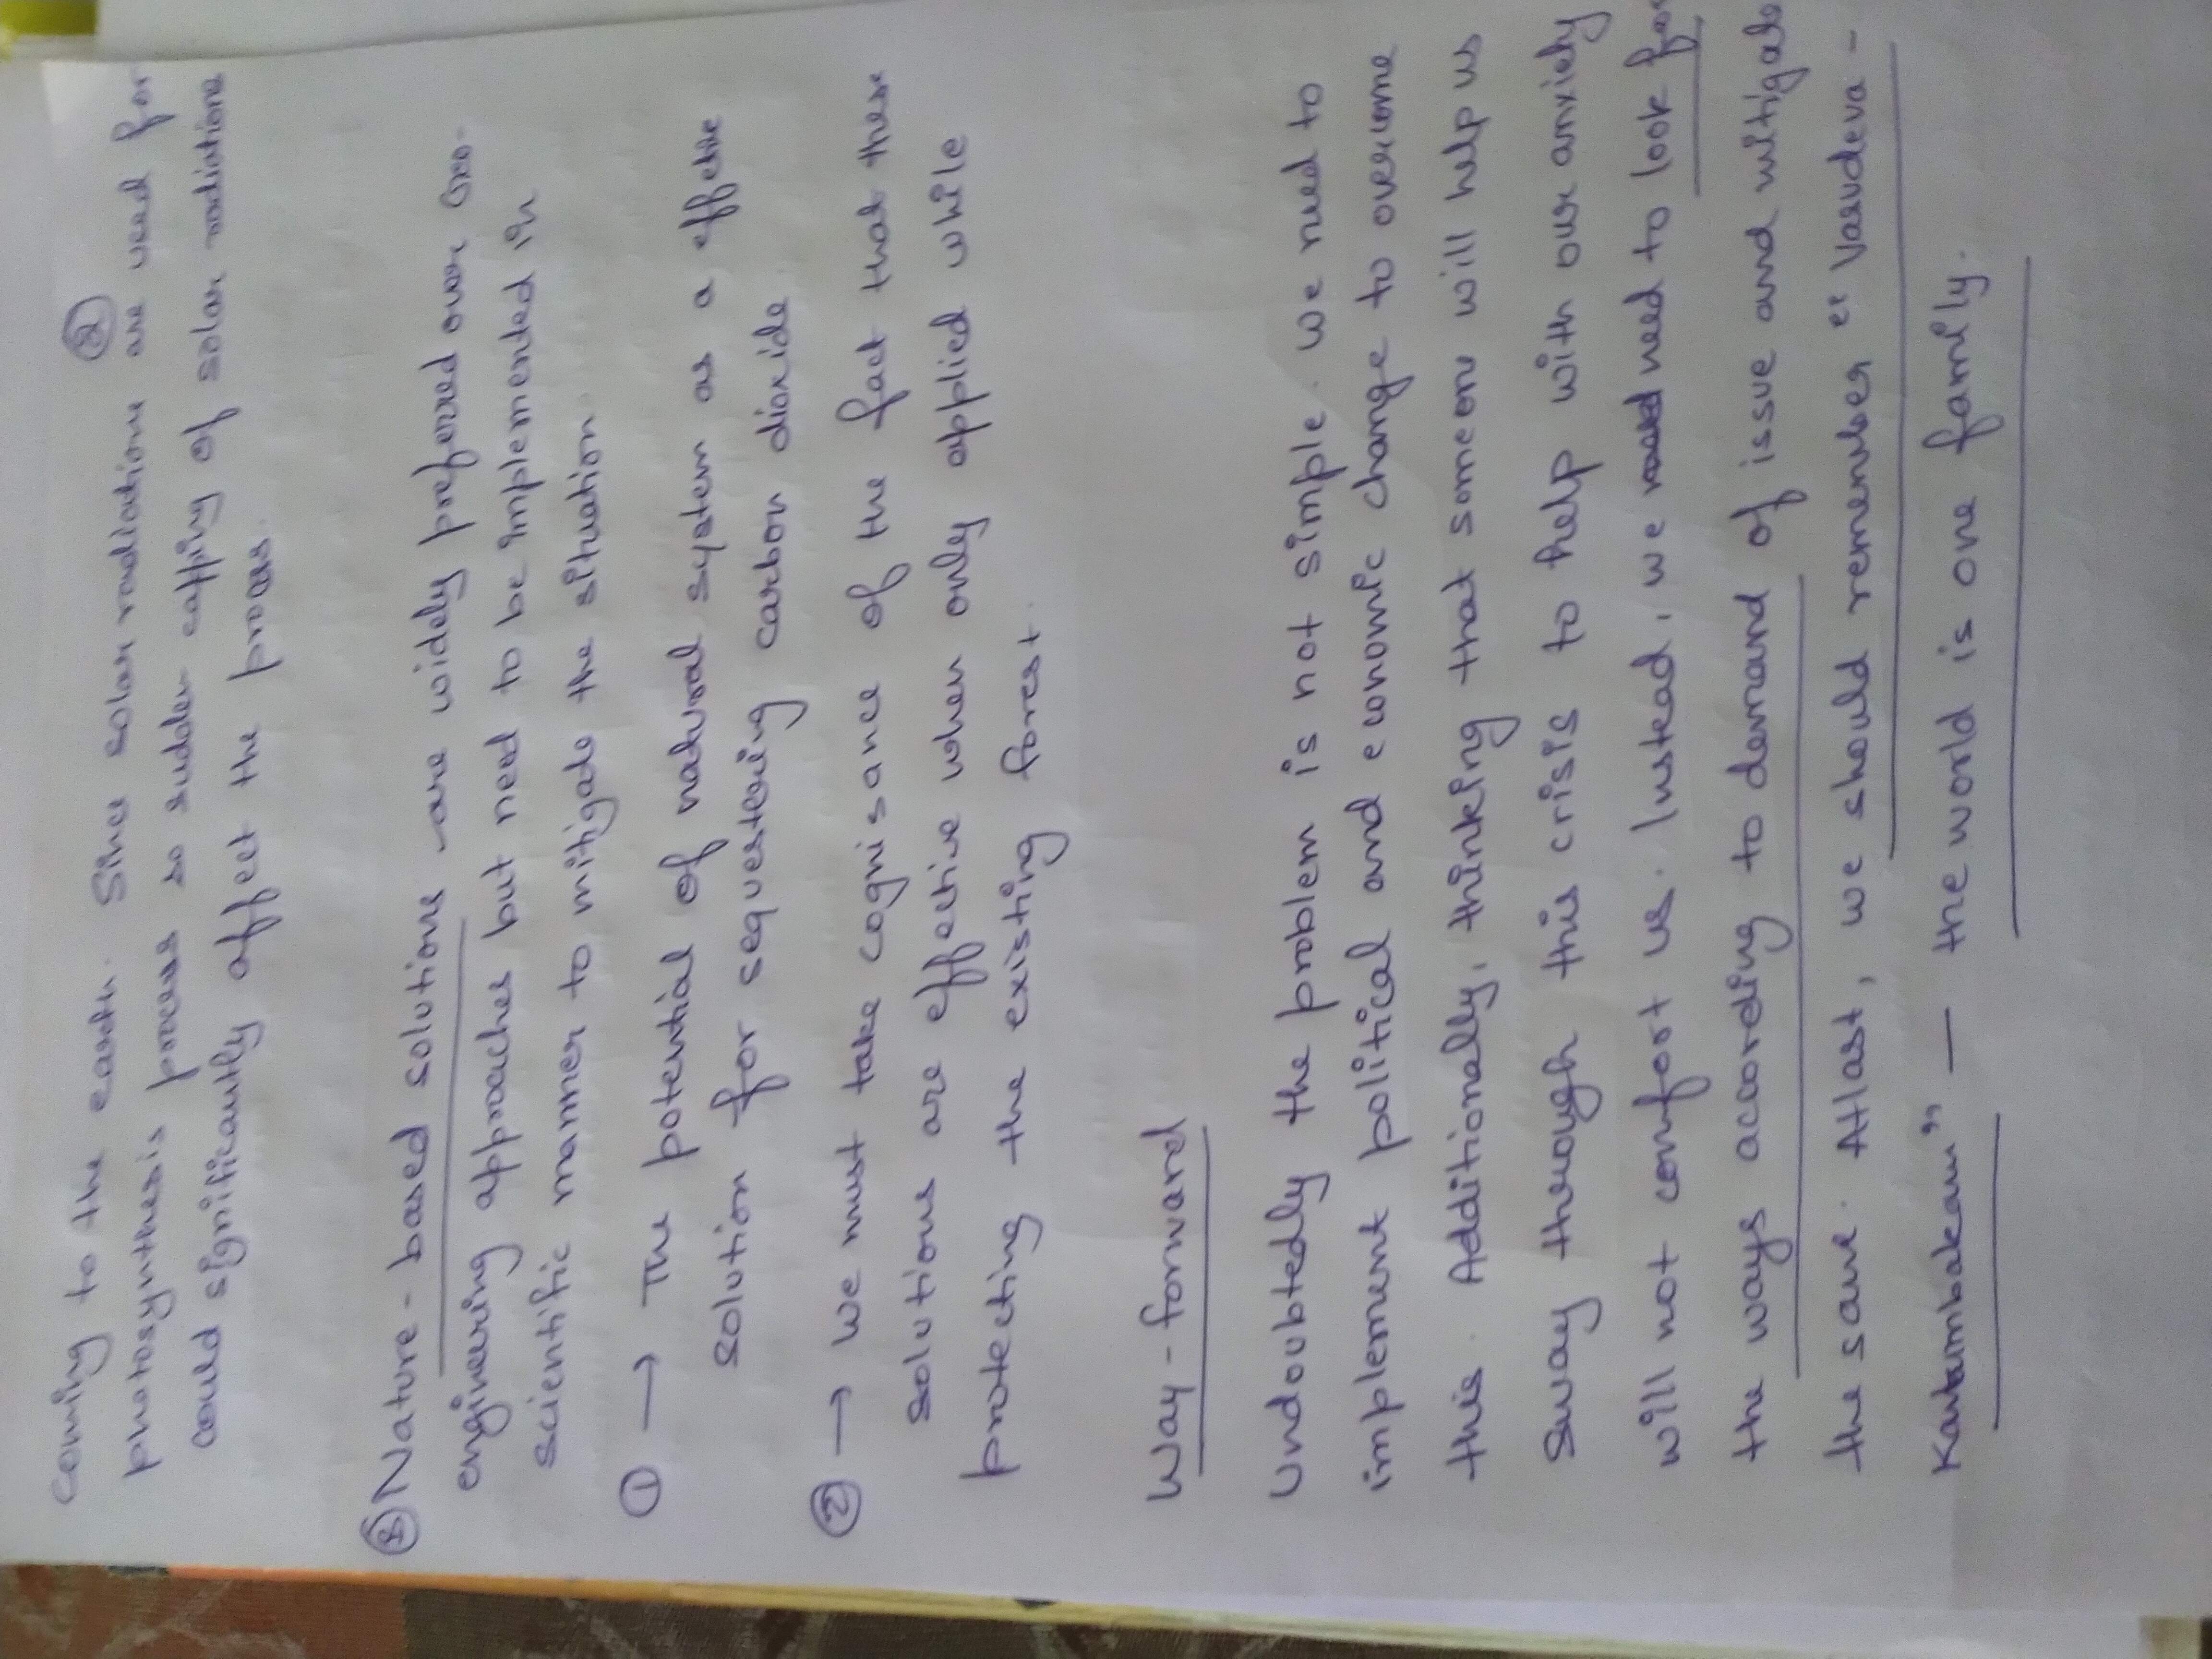 ②
coming to the earth. Since solar radiations are used for
photosynthesis process so sudden capping of solar radiations
could significantly affect the process.
③ Nature-based solutions - are widely preferred over Geo-
engineering approaches but need to be implemented in
scientific manner to mitigate the situation.
① → The potential of natural system as a effective
solution for sequestering carbon dioxide
② → We must take cognisance of the fact that these
solutions are effective when only applied while
protecting the existing forest.
Way-forward
Undoubtedly the problem is not simple. We need to
implement political and economic change to overcome
this. Additionally, thinking that someone will help us
Sway through this crisis to help with our anxiety
will not comfort us. Instead, we need to look for
the ways according to demand of issue and mitigate
the same. Atlast, we should remember "Vasudeva-
Kutumbakam" — the world is one family.